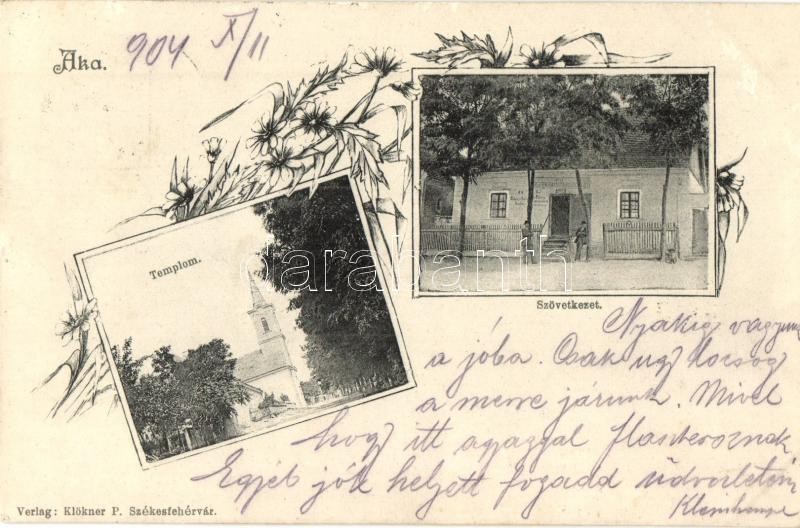 Aka.
904 X/11
Templom.
Szövetkezet.
darabanth
Nyakig vagyunk
a jóba. Csak ugy locsog
a merre járunk. Mivel
hogy itt agyaggal flaszteroznak
Egyéb jók helyett fogadd üdvözletem
Verlag: Klökner P. Székesfehérvár.